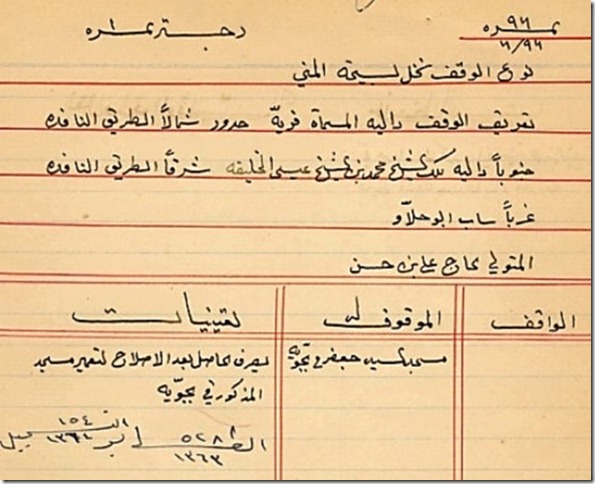 نمره ٩٦ دفتر نمره ١
٦/٩٦
نوع الوقف نخل لسيحة المني
تعريف الوقف داليه المسماة فريّة حدود شمالاً الطريق النافده
جنوباً داليه ملك الشيخ محمد بن الشيخ عيسى الخليفه شرقاً الطريق النافده
غرباً ساب ابو حلاو
المتولي الحاج علي بن حسن
الواقف الموقوف له تعينيات
مسجد السيد جعفر في جويّه يصرف الحاصل بعد الاصلاح لتعمير مسجد
المذكور في جويّه
١٥٤
١٣٦٤
٥٢٨٨
١٣٦٣